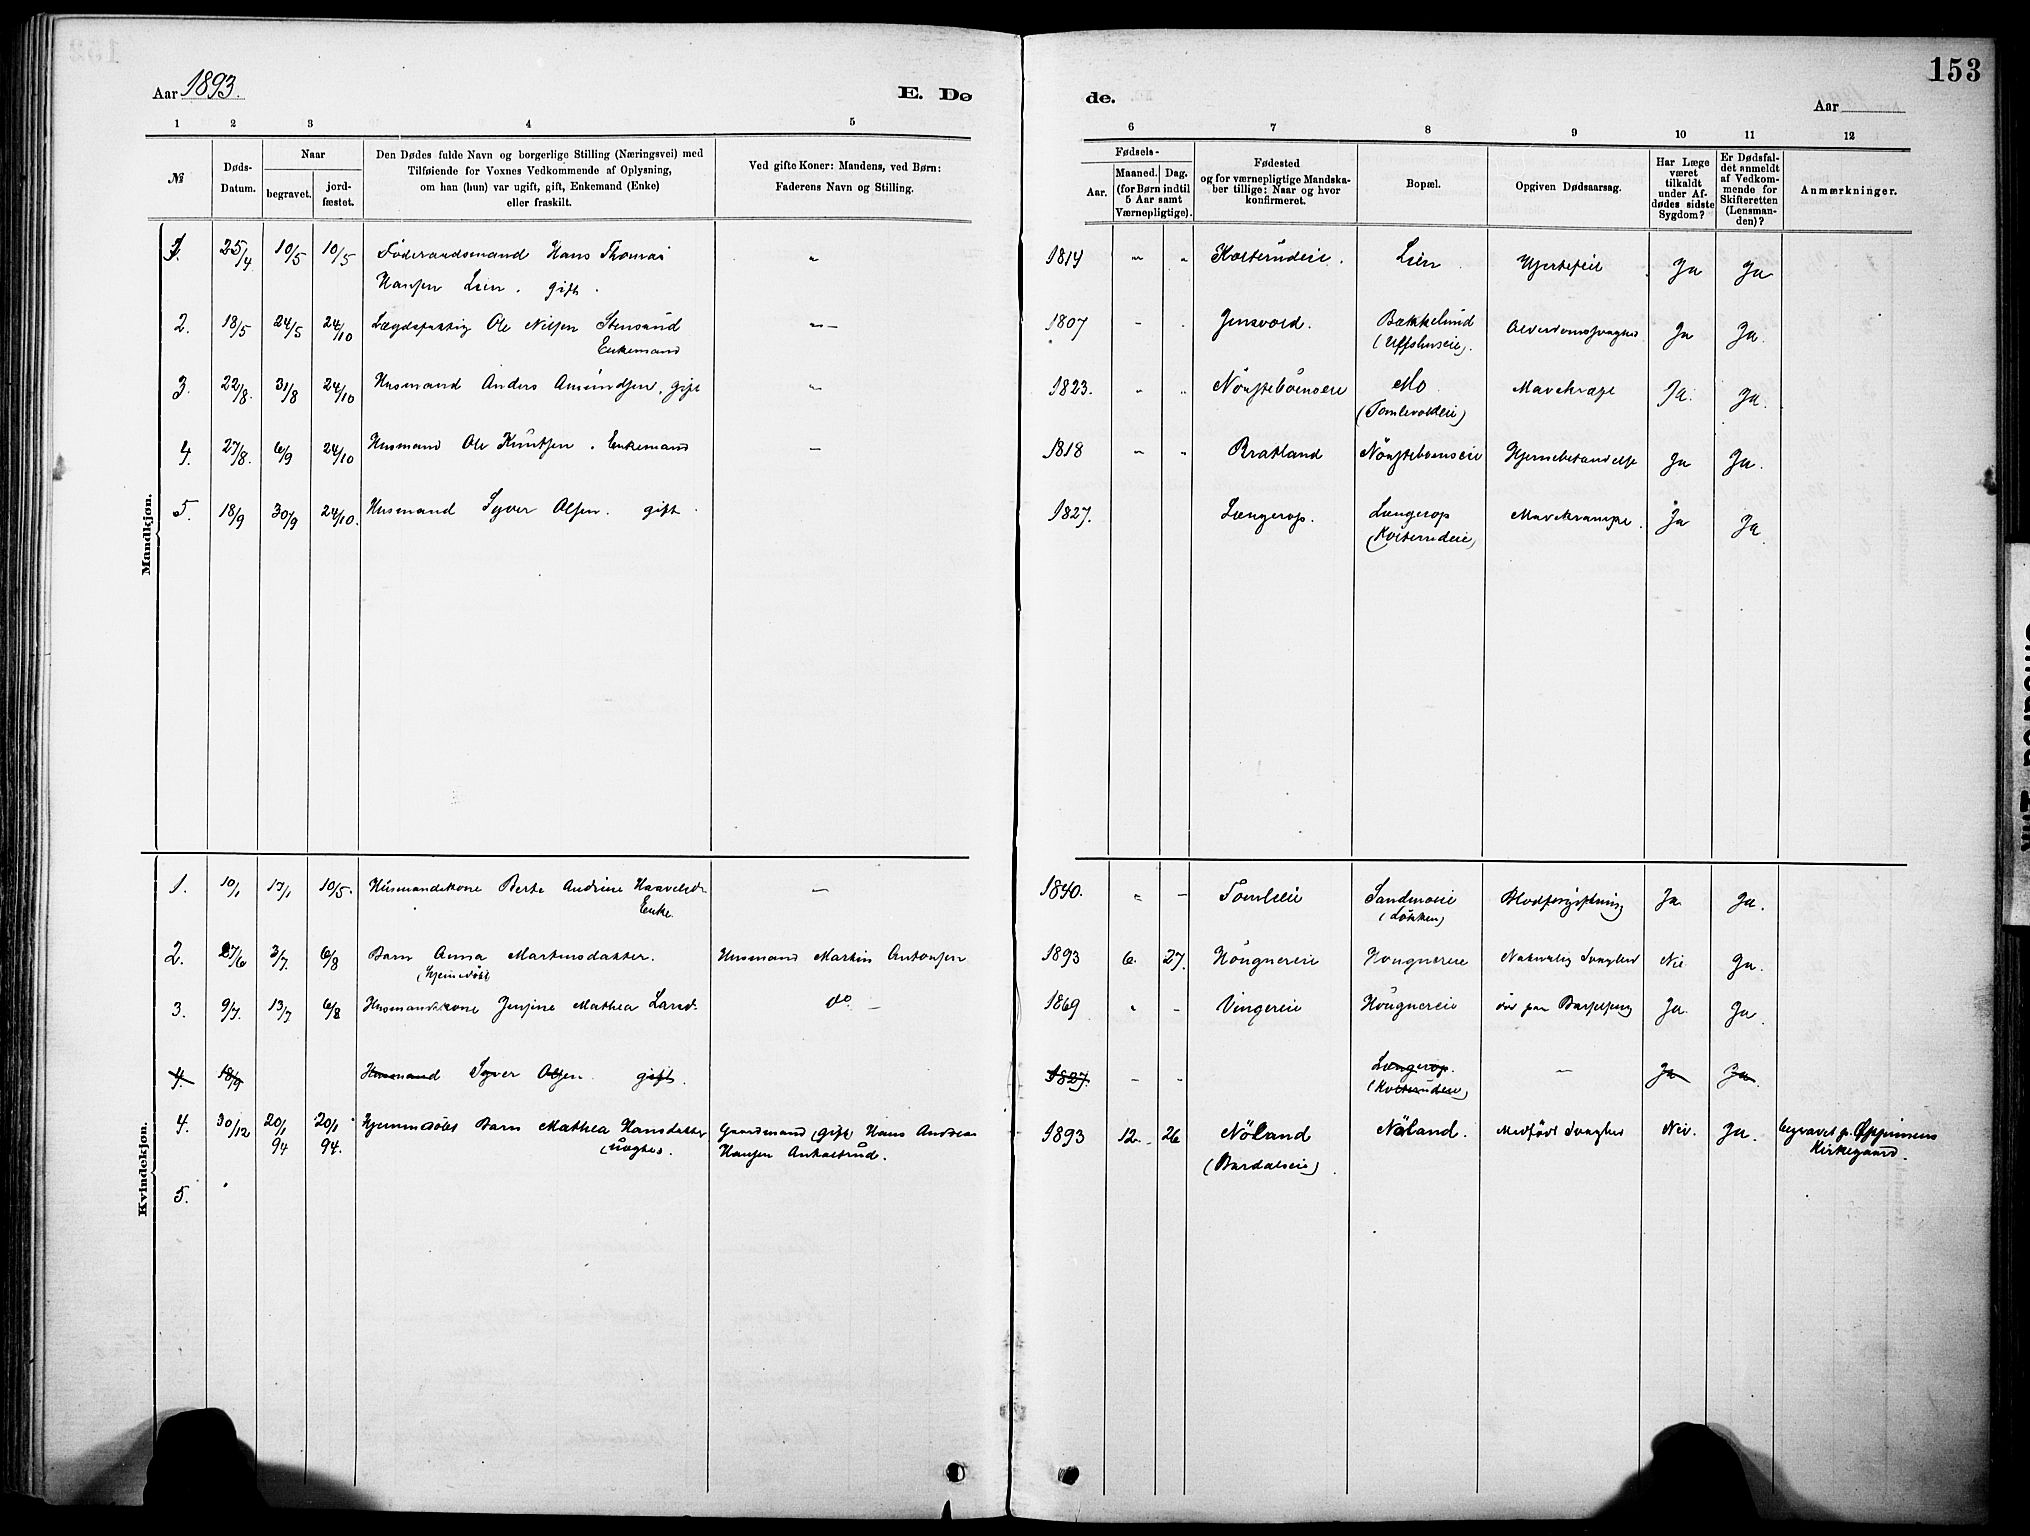 153
Aar 1893.
E. Dø
de.
Aar
1 2 3 4 5
6 7 8 9 10 11 12
№
Døds-
Datum.
Naar
begravet.
jord-
fæstet.
Den Dødes fulde Navn og borgerlige Stilling (Næringsvei) med
Tilføiende for Voxnes Vedkommende af Oplysning,
om han (hun) var ugift, gift, Enkemand (Enke)
eller fraskilt.
Ved gifte Koner: Mandens, ved Børn:
Faderens Navn og Stilling.
Fødsels-
Aar.
Maaned. Dag.
(for Børn indtil
5 Aar samt
Værnepligtige).
Fødested
og for værnepligtige Mandska-
ber tillige: Naar og hvor
konfirmeret.
Bopæl.
Opgiven Dødsaarsag.
Har Læge
været
tilkaldt
under Af-
dødes sidste
Sygdom?
Er Dødsfal-
det anmeldt
af Vedkom-
mende for
Skifteretten
(Lensman-
den)?
Anmærkninger.
Mandkjøn.
1. 25/4 10/5 10/5 Føderaadsmand Hans Thomas " 1814 " " Kolterudeie. Lien Hjertefeil Ja Ja
Hansen Lien. gift.
2. 18/5 24/5 24/10 Lægdsfattig Ole Nilsen Stensrud "– 1807 - Jensvold. Bækkelund Alderdomssvaghed Ja Ja.
Enkemand
3. 22/8. 31/8 24/10 Husmand Anders Amundsen. gift " 1823. " " Mo Ja. Ja.
(Tomlevoldeie)
4. 27/8. 6/9 24/10 Husmand Ole Knutsen. Enkemand – 1818 " " Bratland Hjernebetændelse Ja Ja.
5. 18/9 30/9 24/10. Husmand Syver Olsen. gift. 1827. Længerop. Længerop Mavekrampe. Ja Ja
(Kolterudeie)
Kvindekjøn.
1. 10/1 17/1 10/5. Husmandskone Berte Andrine Haavelsdr – 1840. " - Tomleeie Sandmoeie Blodforgiftning Ja. Ja.
Enke. (Løkken)
2. 27/6 3/7. 6/8 Barn Anna Martinsdatter. Husmand Martin Antonsen 1893 6. 27. Hougnereie Hougnereie Naturlig Svaghed Nei Ja.
(hjemmedøbt
3. 9/7. 13/7 6/8 Husmandskone Jensine Mathea Larsd. do – 1869 " - Vingereie Hougnereie død paa Barselseng Ja. Ja
4. 18/9 Husmand Syver Olsen. gift. 1827. - - Længerop. – Ja Ja
(Kolterudeie)
4. 30/12 20/1 20/1 Hjemmedøbt Barn Mathea Hansdatter Gaardmand (gift Hans Andreas 1893 12. 26 Nöland Nöland. Medfødt Svaghed Nei. Ja. begravet p.
94 94. (uægte). Hansen (Bardalseie) Kirkegaard.
5.